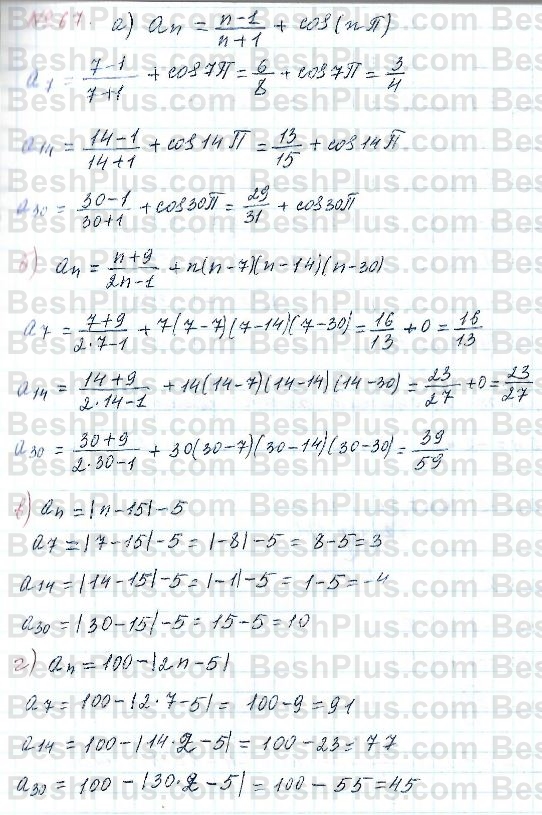 №67. а) an = (n-1)/(n+1) + cos(nπ)
a7 = (7-1)/(7+1) + cos7π = 6/8 + cos7π = 3/4
a14 = (14-1)/(14+1) + cos14π = 13/15 + cos14π
a30 = (30-1)/(30+1) + cos30π = 29/31 + cos30π
б) an = (n+9)/(2n-1) + n(n-7)(n-14)(n-30)
a7 = (7+9)/(2·7-1) + 7(7-7)(7-14)(7-30) = 16/13 + 0 = 16/13
a14 = (14+9)/(2·14-1) + 14(14-7)(14-14)(14-30) = 23/27 + 0 = 23/27
a30 = (30+9)/(2·30-1) + 30(30-7)(30-14)(30-30) = 39/59
в) an = |n-15|-5
a7 = |7-15|-5 = |-8|-5 = 8-5 = 3
a14 = |14-15|-5 = |-1|-5 = 1-5 = -4
a30 = |30-15|-5 = 15-5 = 10
г) an = 100-|2n-5|
a7 = 100-|2·7-5| = 100-9 = 91
a14 = 100-|14·2-5| = 100-23 = 77
a30 = 100-|30·2-5| = 100-55 = 45
BeshPlus.com